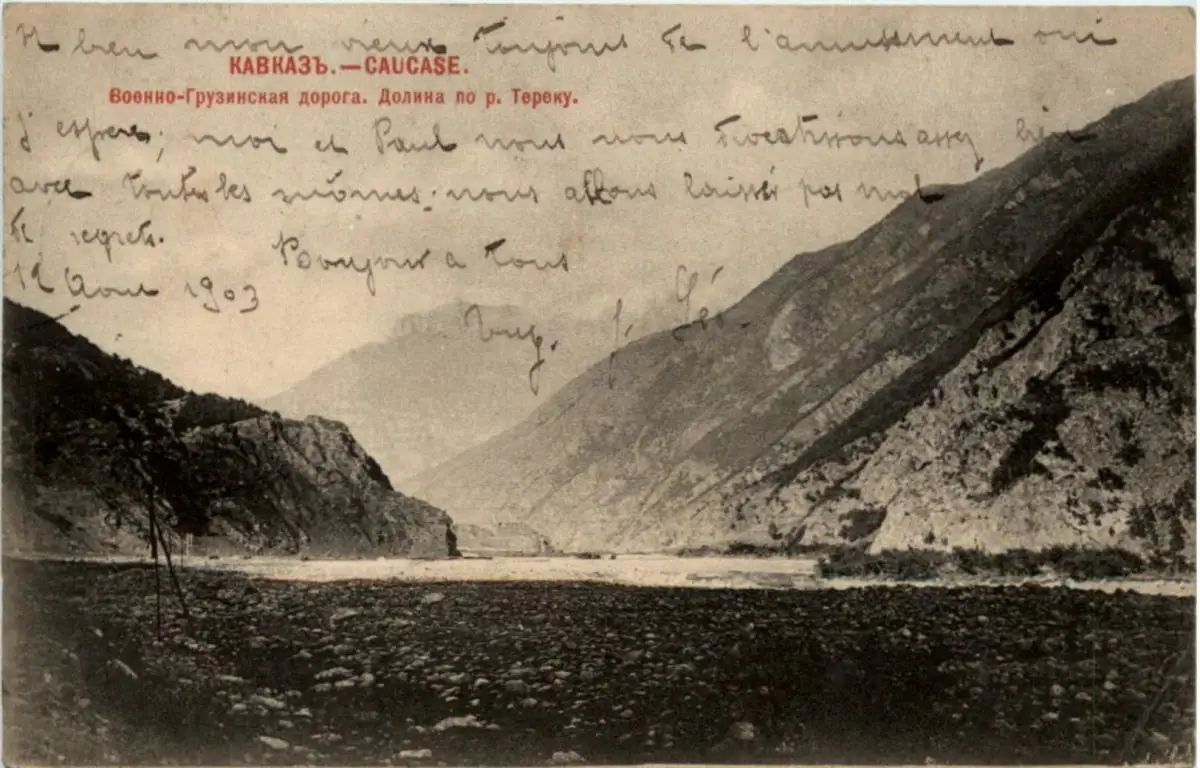 H bien mon vieux toujours de l'amusement oui
КАВКАЗЪ.—CAUCASE.
Военно-Грузинская дорога. Долина по р. Тереку.
j'espère; moi et Paul nous nous assez bien
avec toutes les mômes. nous allons laisser pas mal
de regrets. Bonjour a tous
12 Aout 1903